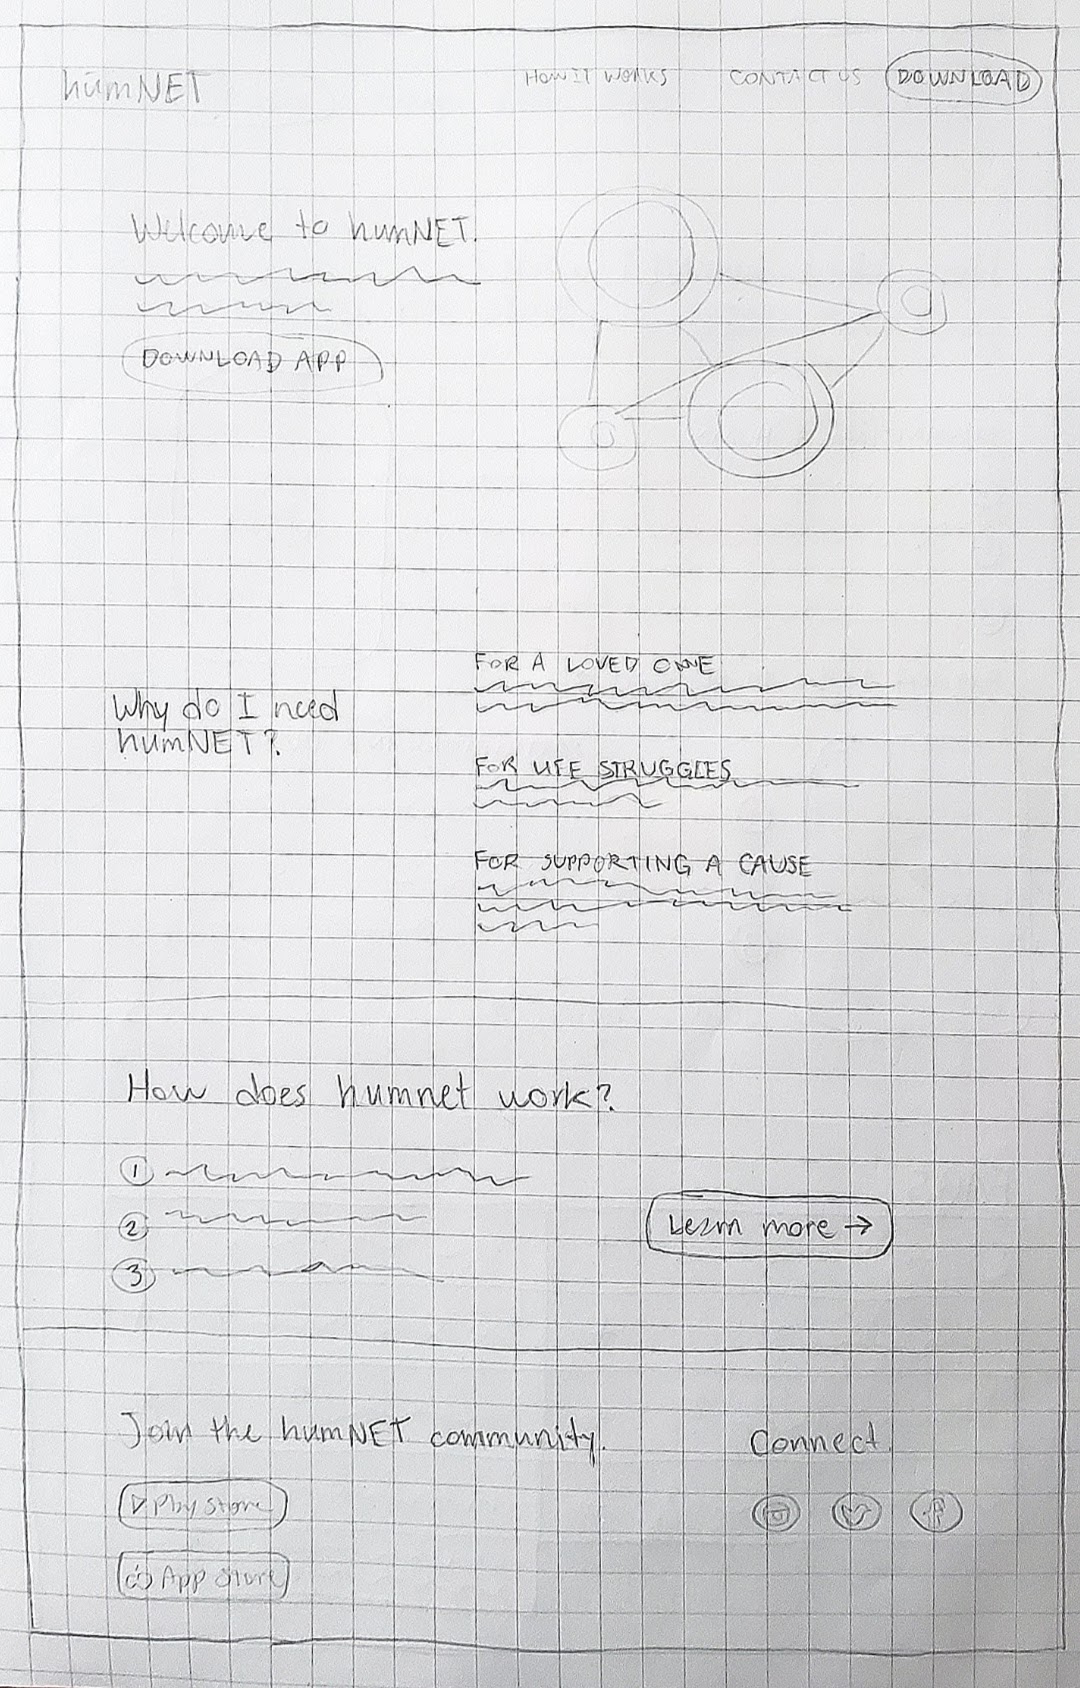 humNET
HOW IT WORKS
CONTACT US
DOWNLOAD
Welcome to humNET.
DOWNLOAD APP
FOR A LOVED ONE
Why do I need
humNET?
FOR LIFE STRUGGLES
FOR SUPPORTING A CAUSE
How does humnet work?
1
2
3
Learn more →
Join the humNET community.
Connect.
Play Store
App Store